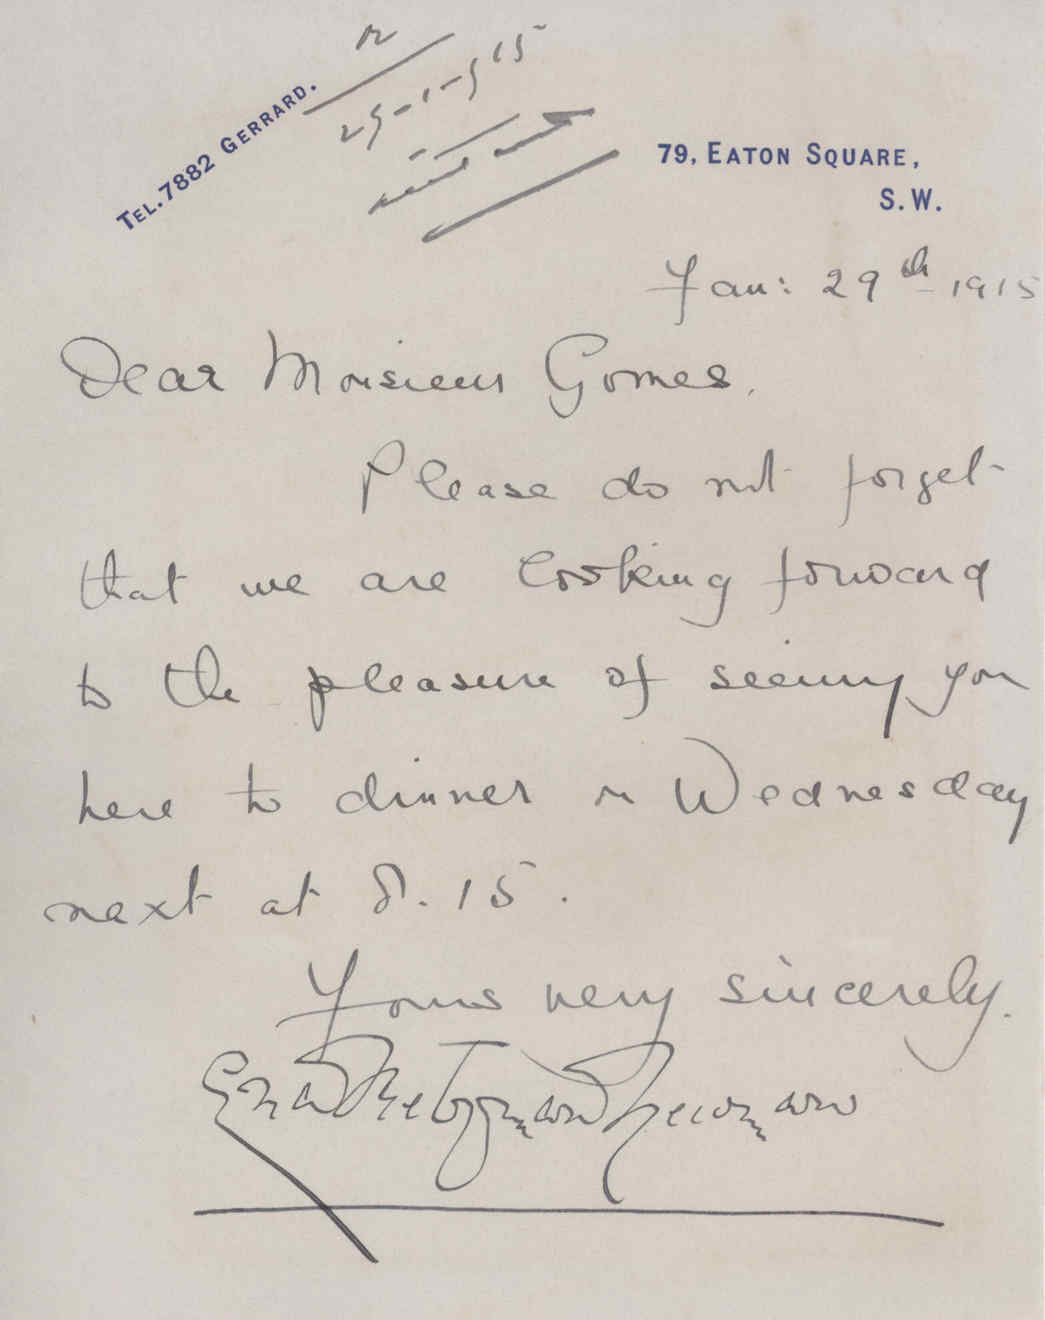 R
29-1-915
TEL. 7882 GERRARD.
79, EATON SQUARE,
S.W.
Jan: 29th 1915
Dear Monsieur Gomes.
Please do not forget
that we are looking forward
to the pleasure of seeing you
here to dinner on Wednesday
next at 8.15.
Yours very sincerely.
Newman